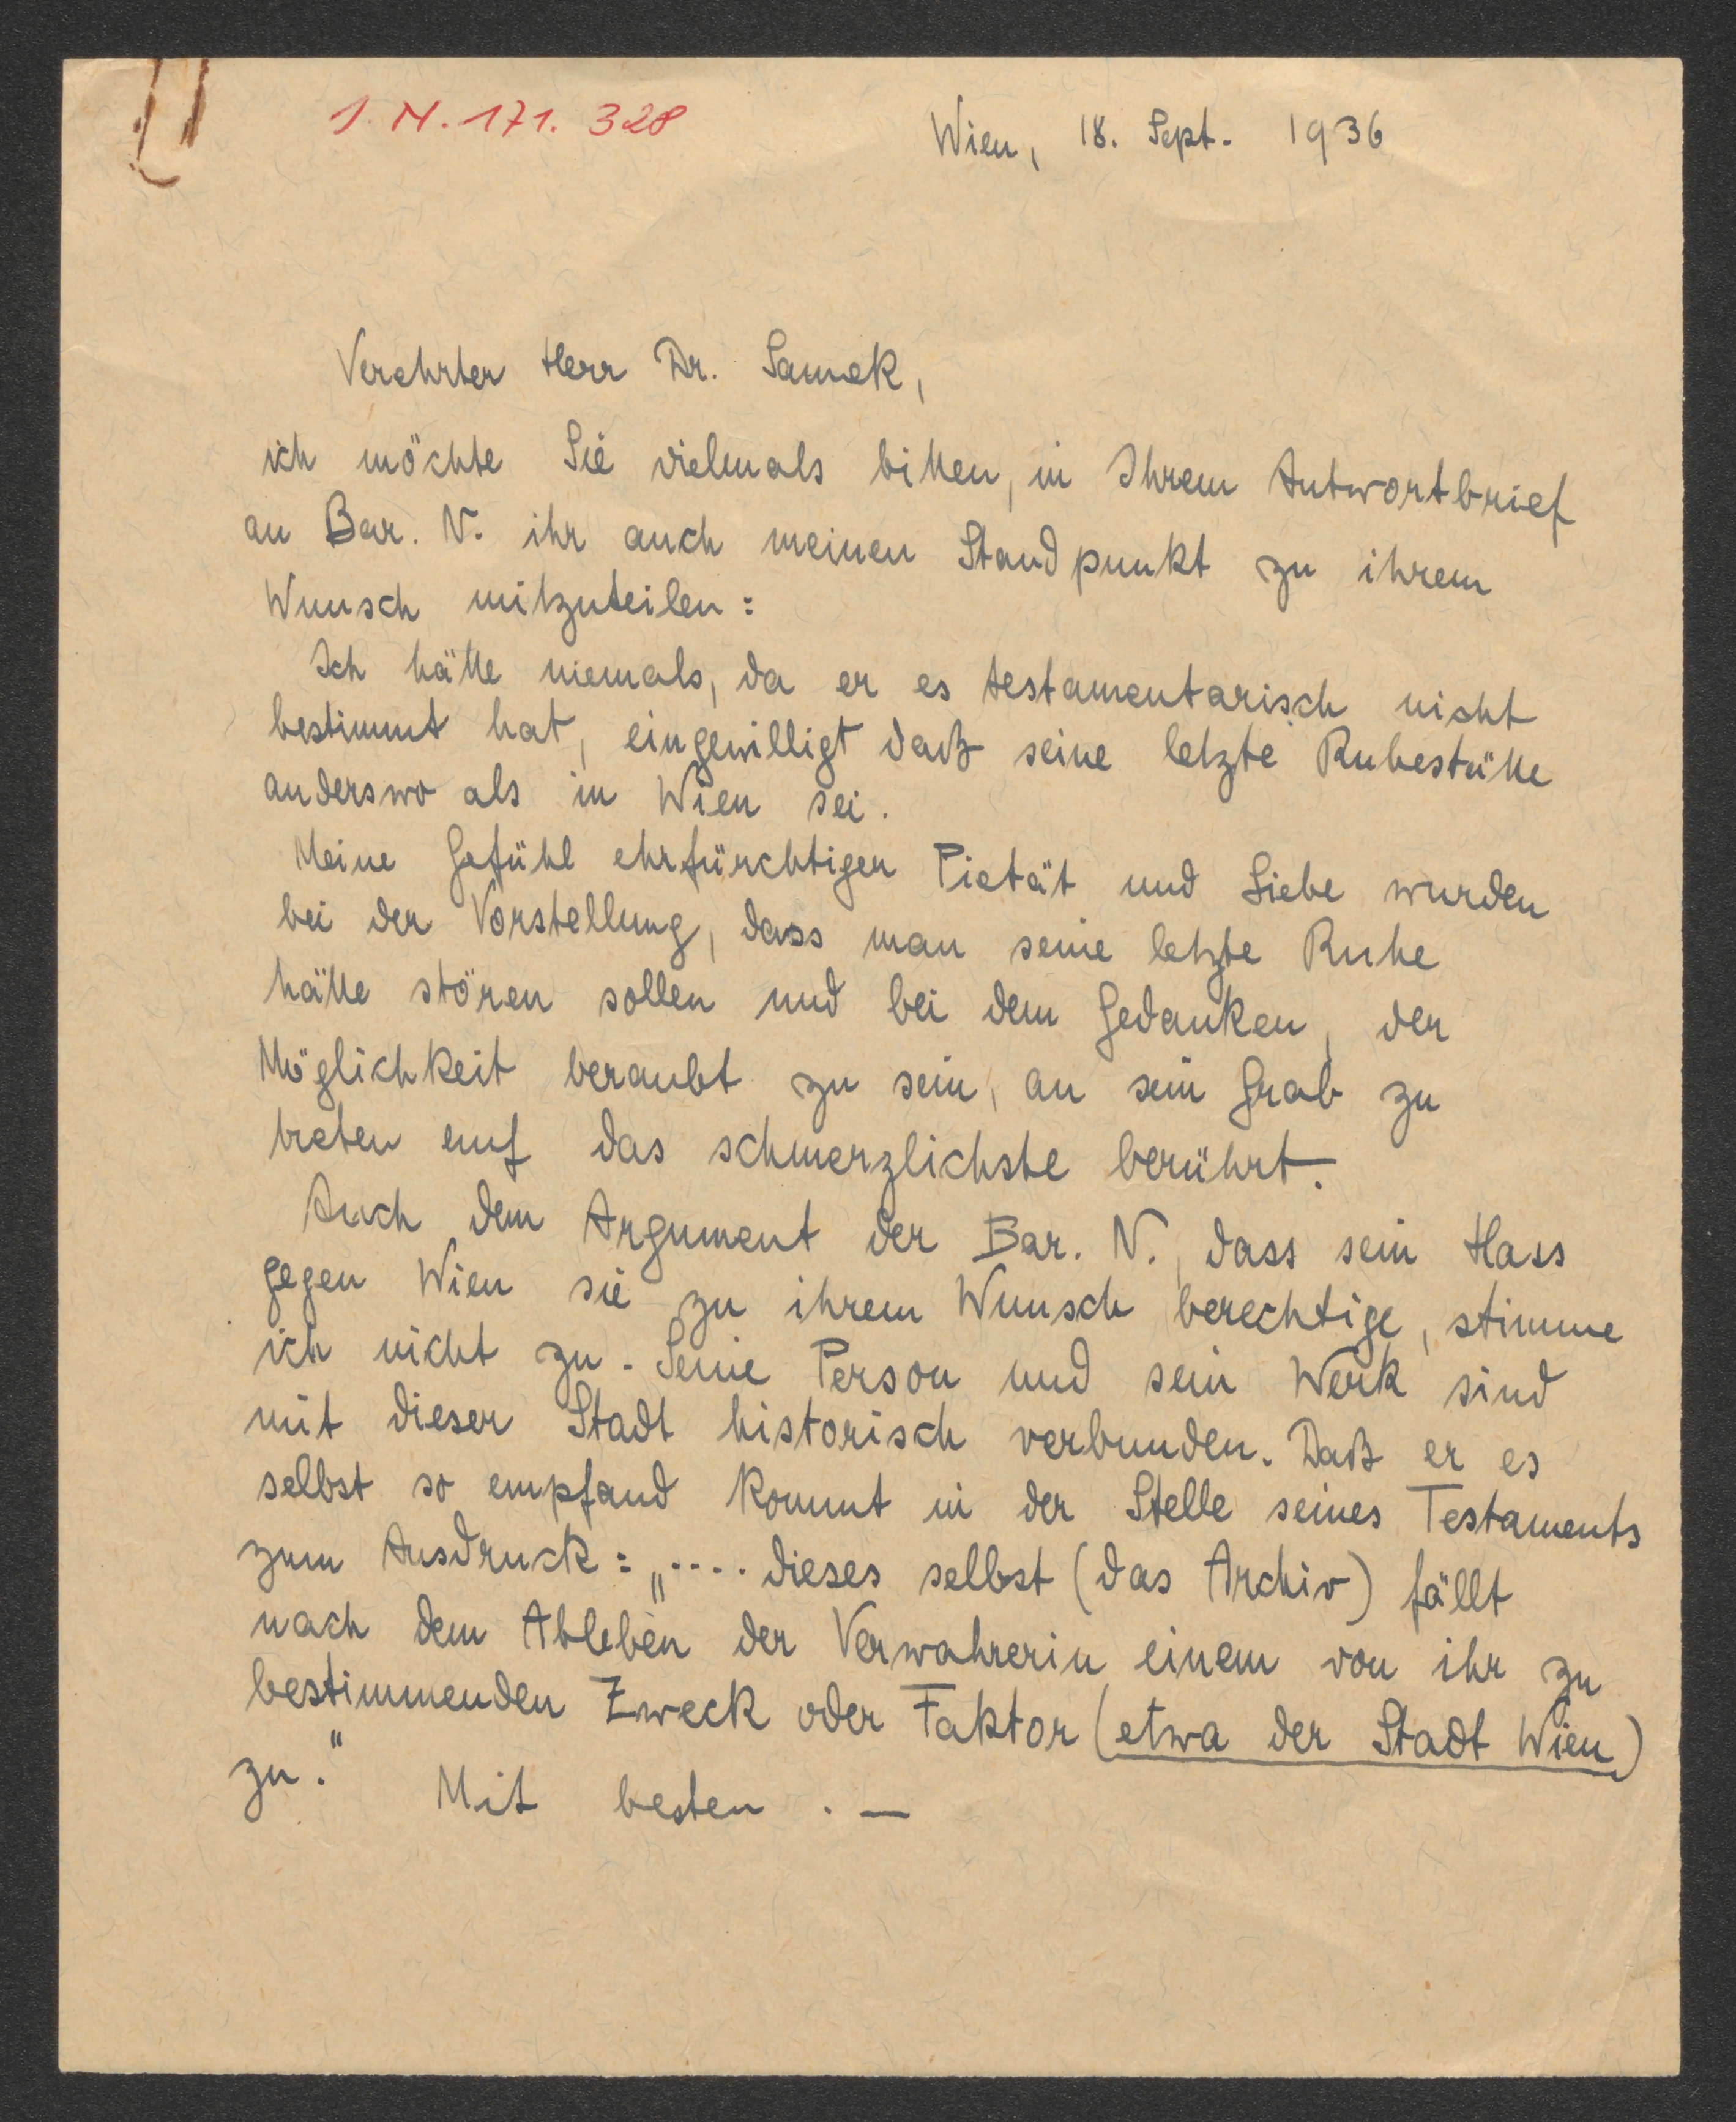 I. N. 171. 328
Wien, 18. Sept. 1936
Verehrter Herr Dr. Samek,
ich möchte Sie vielmals bitten, in Ihrem Antwortbrief
an Bar. N. ihr auch meinen Standpunkt zu ihrem
Wunsch mitzuteilen:
Ich hätte niemals, da er es testamentarisch nicht
bestimmt hat, eingewilligt daß seine letzte Ruhestätte
anderswo als in Wien sei.
Meine Gefühl ehrfürchtiger Pietät und Liebe wurden
bei der Vorstellung, dass man seine letzte Ruhe
hätte stören sollen und bei dem Gedanken, der
Möglichkeit beraubt zu sein, an sein Grab zu
treten auf das schmerzlichste berührt.
Auch dem Argument der Bar. N., dass sein Hass
gegen Wien sie zu ihrem Wunsch berechtige, stimme
ich nicht zu. Seine Person und sein Werk sind
mit dieser Stadt historisch verbunden. Daß er es
selbst so empfand kommt in der Stelle seines Testaments
zum Ausdruck: „.... dieses selbst (das Archiv) fällt
nach dem Ableben der Verwahrerin einem von ihr zu
bestimmenden Zweck oder Faktor (etwa der Stadt Wien)
zu."
Mit besten . —